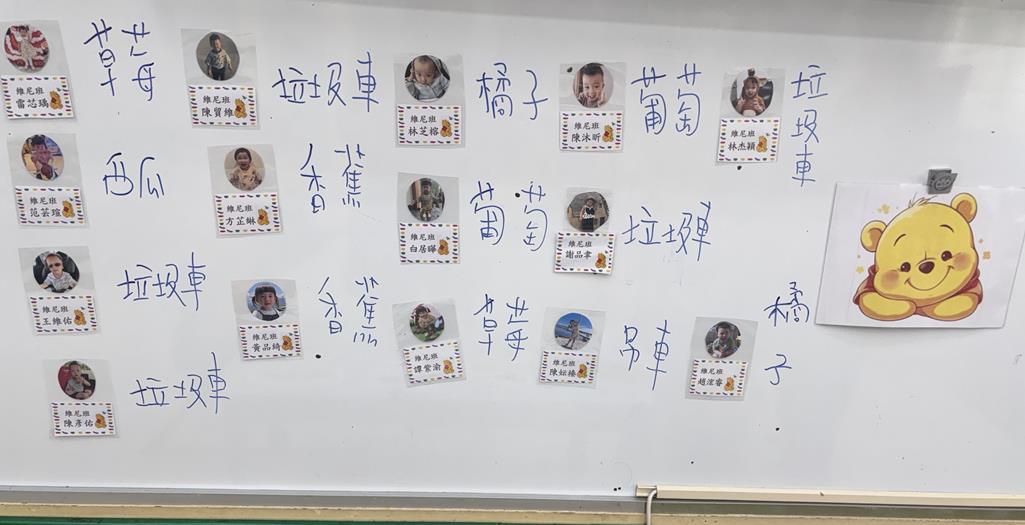 維尼班
雷芯瑀
草莓
維尼班
陳貿維
垃圾車
維尼班
林芝榕
橘子
維尼班
陳沐昕
葡萄
維尼班
林杰穎
垃圾車
維尼班
范芸瑄
西瓜
維尼班
方芷綝
香蕉
維尼班
白居曄
葡萄
維尼班
謝品聿
垃圾車
維尼班
王維佑
垃圾車
維尼班
黃品綺
香蕉
維尼班
譚紫渝
草莓
維尼班
陳妘榛
吊車
維尼班
趙浤睿
橘子
維尼班
陳彥佑
垃圾車